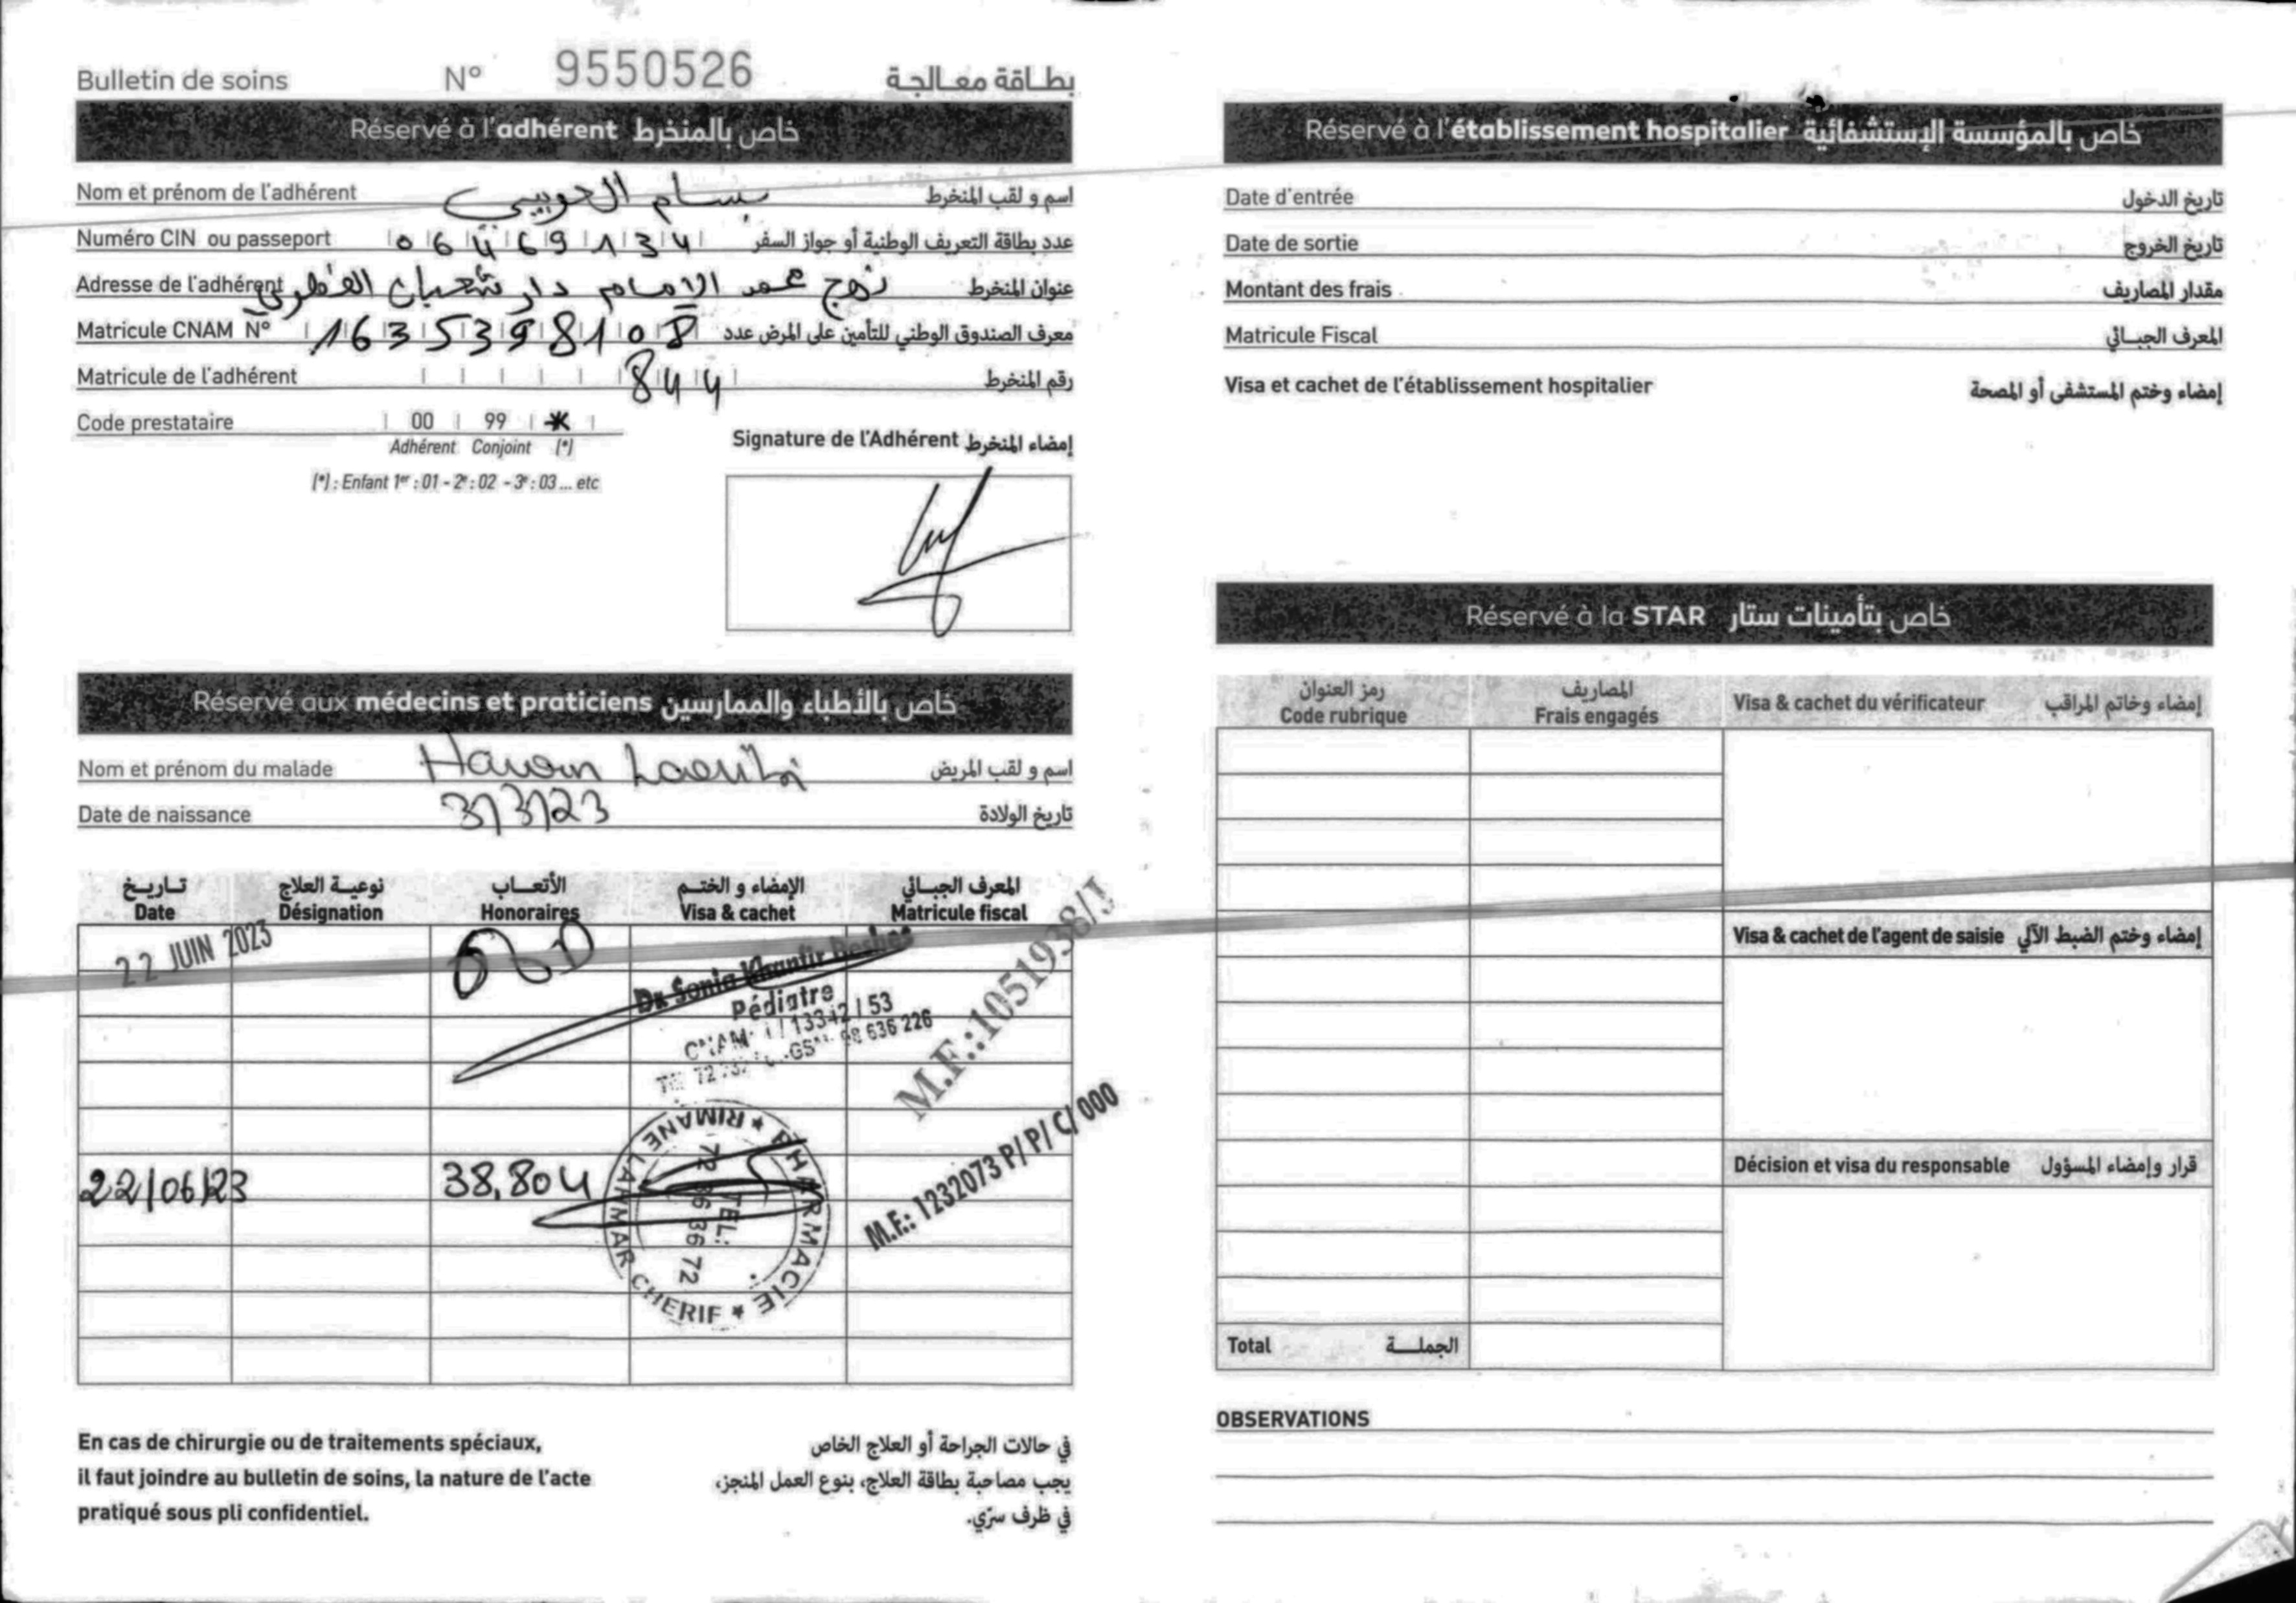 Bulletin de soins N° 9550526 بطاقة معالجة
Réservé à l'adhérent خاص بالمنخرط
Nom et prénom de l'adhérent بسام اسم و لقب المنخرط
Numéro CIN ou passeport 06469134 عدد بطاقة التعريف الوطنية أو جواز السفر
Adresse de l'adhérent نهج عمر الامام دار شعبان الفهري عنوان المنخرط
Matricule CNAM N° 1635398108 معرف الصندوق الوطني للتأمين على المرض عدد
Matricule de l'adhérent 844 رقم المنخرط
Code prestataire 00 99 *
Adhérent Conjoint (*)
(*) : Enfant 1er : 01 - 2e : 02 - 3e : 03 ... etc
Signature de l'Adhérent إمضاء المنخرط
Réservé aux médecins et praticiens خاص بالأطباء والممارسين
Nom et prénom du malade اسم و لقب المريض
Date de naissance 3/3/23 تاريخ الولادة
تاريخ نوعية العلاج الأتعاب الإمضاء و الختم المعرف الجبائي
Date Désignation Honoraires Visa & cachet Matricule fiscal
22 JUIN 2023
Dr Sonia Khanfir
Pédiatre
CNAM: 1/13342/53
GSM: 98 636 226
M.F.:1051938/J
22/06/23 38,804
PHARMACIE * RIMANE LAHMAR CHERIF *
TEL:
72
M.F.: 1232073 P/P/C/000
En cas de chirurgie ou de traitements spéciaux,
il faut joindre au bulletin de soins, la nature de l'acte
pratiqué sous pli confidentiel.
في حالات الجراحة أو العلاج الخاص
يجب مصاحبة بطاقة العلاج، بنوع العمل المنجز،
في ظرف سرّي.
Réservé à l'établissement hospitalier خاص بالمؤسسة الإستشفائية
Date d'entrée تاريخ الدخول
Date de sortie تاريخ الخروج
Montant des frais مقدار المصاريف
Matricule Fiscal المعرف الجبائي
Visa et cachet de l'établissement hospitalier إمضاء وختم المستشفى أو المصحة
Réservé à la STAR خاص بتأمينات ستار
رمز العنوان المصاريف
Code rubrique Frais engagés Visa & cachet du vérificateur إمضاء وخاتم المراقب
Visa & cachet de l'agent de saisie إمضاء وختم الضبط الآلي
Décision et visa du responsable قرار وإمضاء المسؤول
Total الجملة
OBSERVATIONS